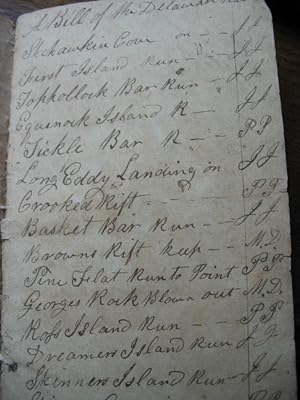 A Bill of the Delaware
Skehawkin Cour on - - J J
First Island Run - D - J J
Tophollock Bar Run - J J
Equenock Island R - - J J
Tickle Bar R - - - P P
Long Eddy Landing on J J
Crooked Rift - D - P P
Basket Bar Run - - J J
Browns Rift keep - - M. D.
Pine Flat Run to Point P P
Georges Rock Blown out M. D.
Ross Island Run - - P P
Dreamers Island Run J J
Skinners Island Run - J J